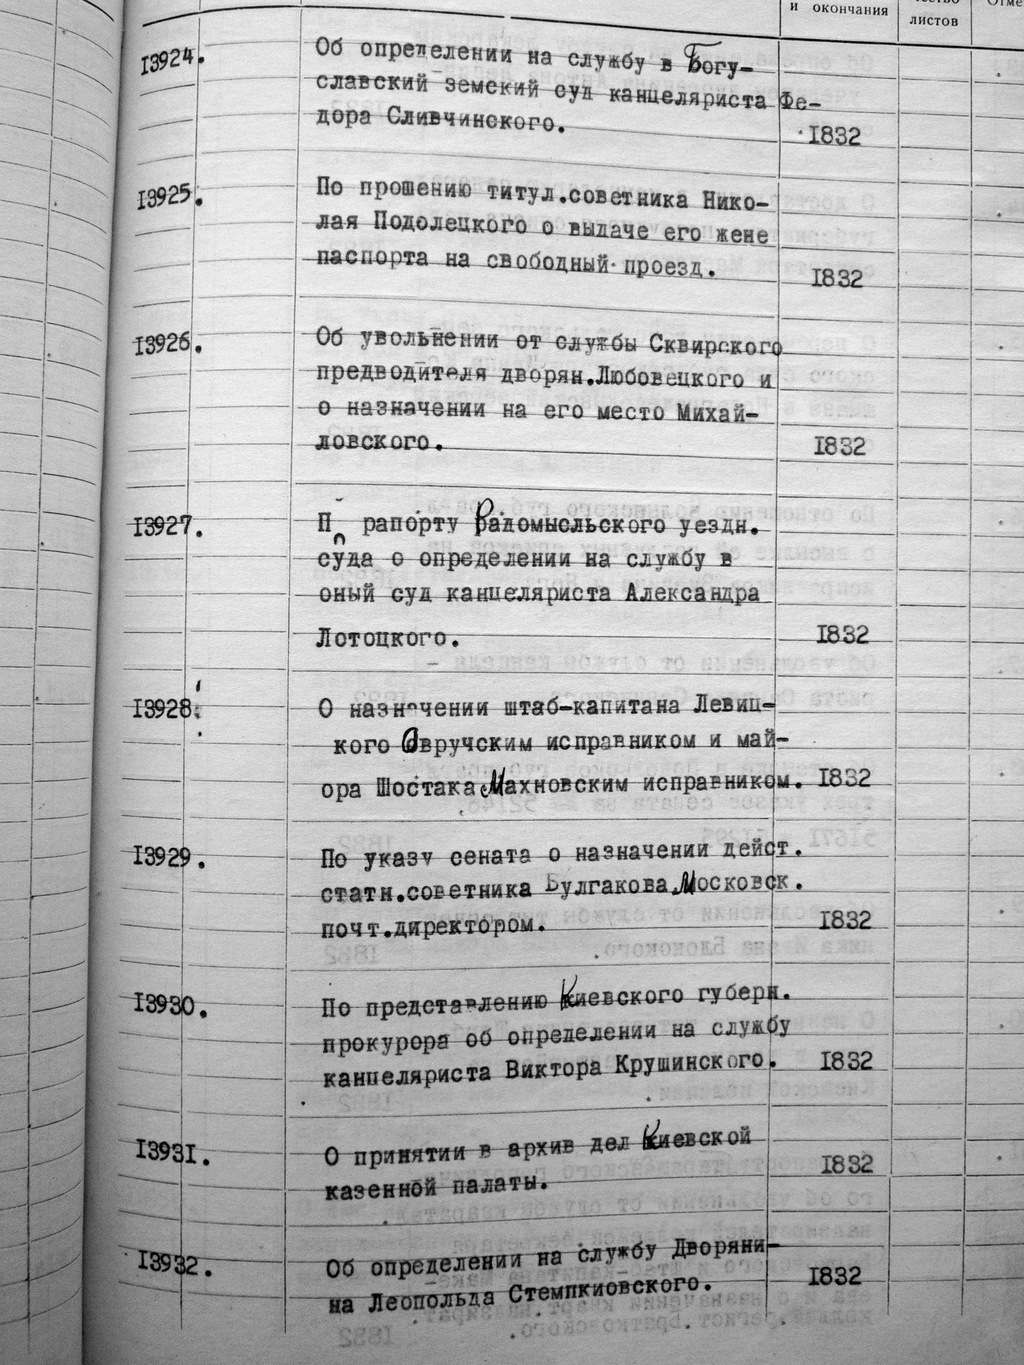 и окончания
листов
13924.
Об определении на службу в Богу-
славский земский суд канцеляриста Фе-
дора Сливчинского.
1832
13925.
По прошению титул.советника Нико-
лая Подолецкого о выдаче его жене
паспорта на свободный проезд.
1832
13926.
Об увольнении от службы Сквирского
предводителя дворян.Любовецкого и
о назначении на его место Михай-
ловского.
1832
13927.
По рапорту Радомысльского уездн.
суда о определении на службу в
оный суд канцеляриста Александра
Лотоцкого.
1832
13928.
О назначении штаб-капитана Левиц-
кого Овручским исправником и май-
ора Шостака Махновским исправником.
1832
13929.
По указу сената о назначении дейст.
статн.советника Булгакова Московск.
почт.директором.
1832
13930.
По представлению Киевского губерн.
прокурора об определении на службу
канцеляриста Виктора Крушинского.
1832
13931.
О принятии в архив дел Киевской
казенной палаты.
1832
13932.
Об определении на службу Дворяни-
на Леопольда Стемпкиовского.
1832